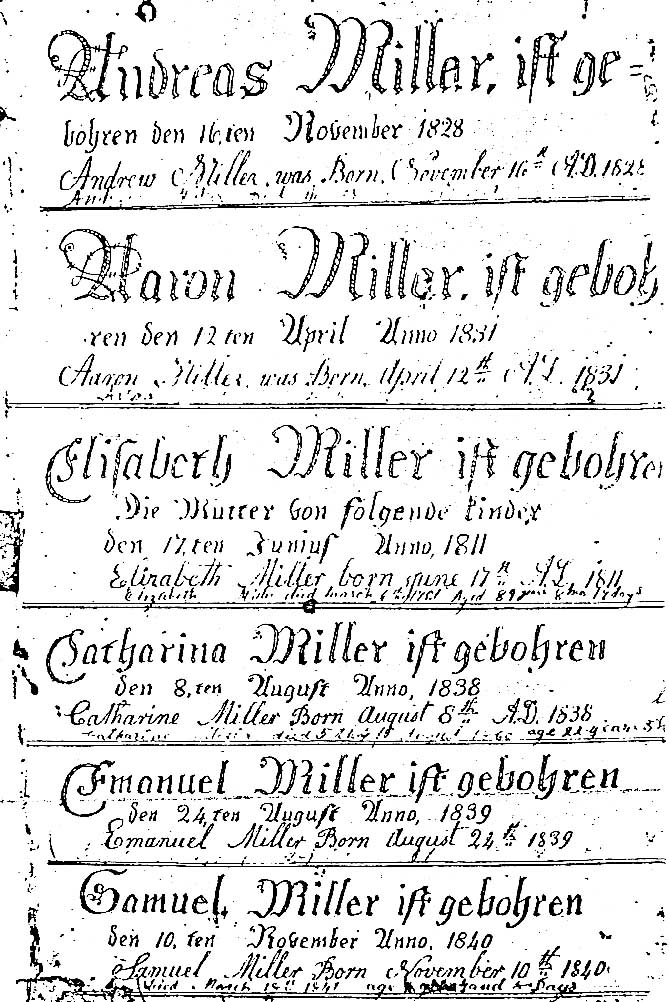 Andreas Miller. ist ge=
bohren den 16,ten November 1828
Andrew Miller was Born, November 16th A.D. 1828
Aaron Miller. ist geboh
ren den 12 ten April Anno 1831
Aaron Miller was Born, April 12th A.D. 1831
Elisabeth Miller ist gebohren
Die Mutter von folgende kinder
den 17,ten Junius Anno, 1811
Elizabeth Miller born June 17th A.D. 1811
Elizabeth died March 6th Aged 89 days
Catharina Miller ist gebohren
den 8,ten August Anno, 1838
Catharine Miller Born August 8th A.D. 1838
Catharine died age 22 years
Emanuel Miller ist gebohren
den 24,ten August Anno, 1839
Emanuel Miller Born August 24th 1839
Samuel Miller ist gebohren
den 10, ten November Anno, 1840
Samuel Miller Born November 10th 1840
died March 1841 age and days